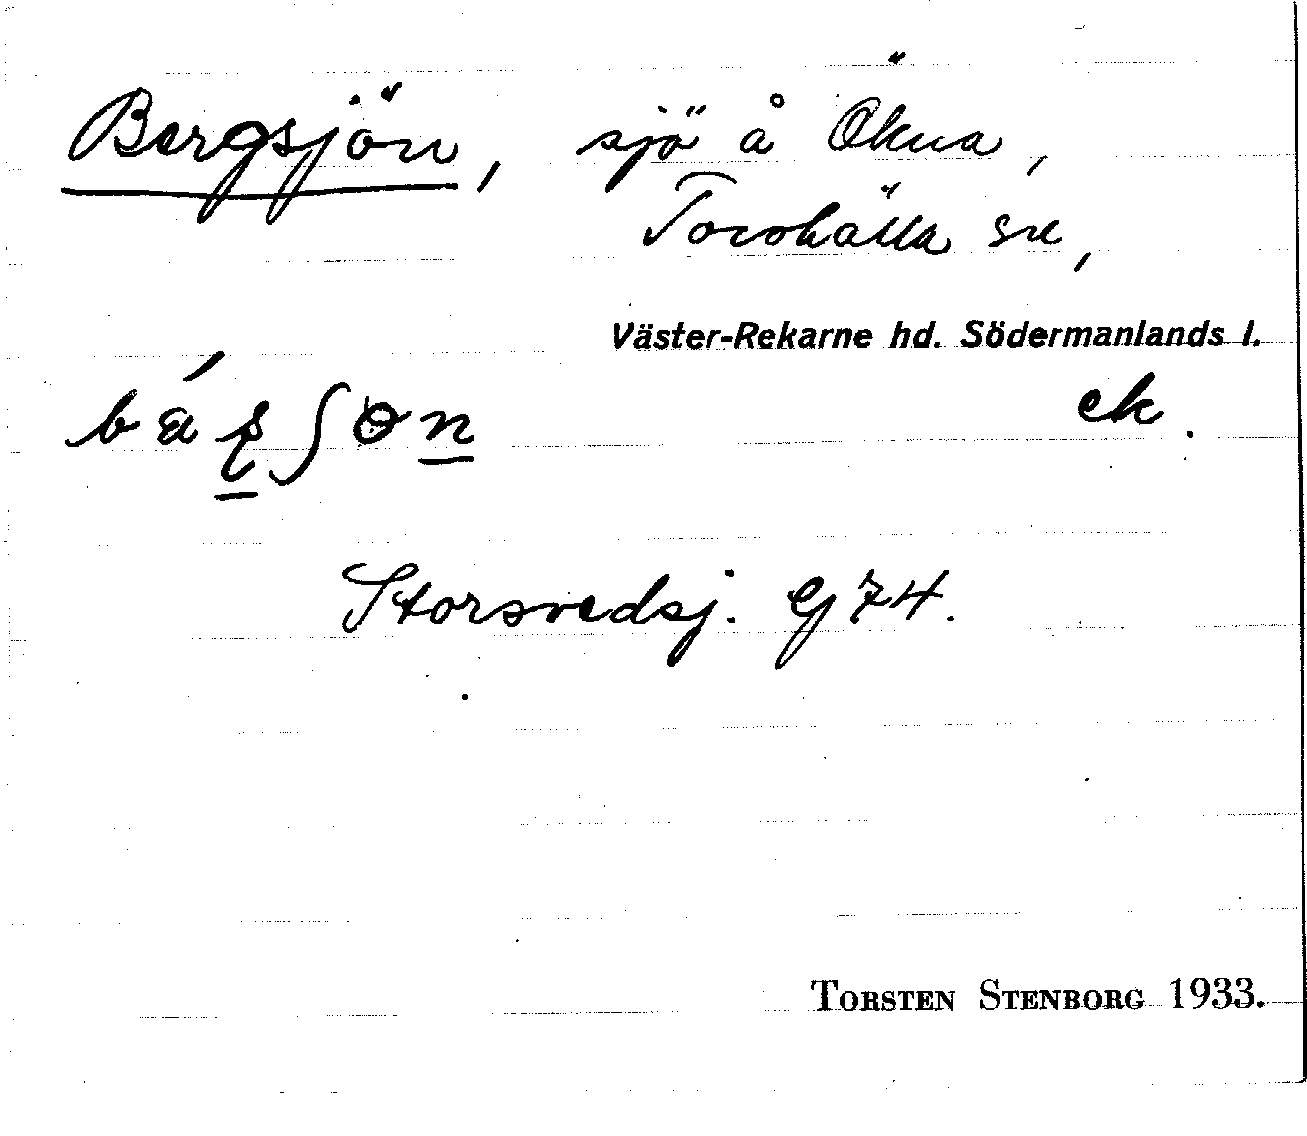 Bergsjön, sjö å Ökna,
Torshälla sn,
Väster-Rekarne hd. Södermanlands l.
ek.
Storsvedsj. G 74.
TORSTEN STENBORG 1933.